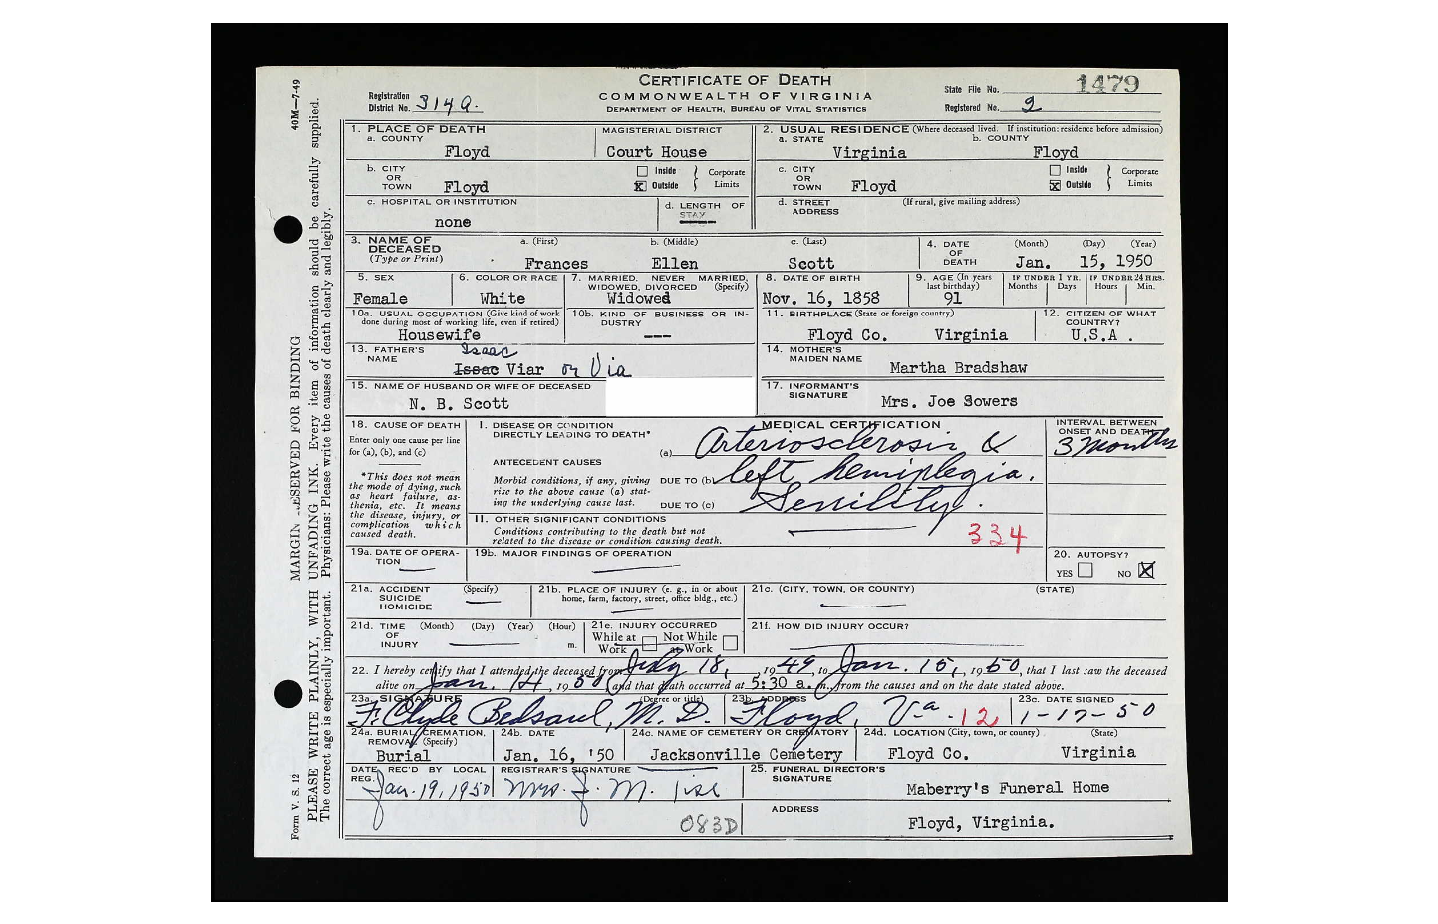 CERTIFICATE OF DEATH
COMMONWEALTH OF VIRGINIA
DEPARTMENT OF HEALTH, BUREAU OF VITAL STATISTICS
Registration District No. 314a.
State File No. 1479
Registered No. 2
40M—7-49
MARGIN RESERVED FOR BINDING
PLEASE WRITE PLAINLY, WITH UNFADING INK. Every item of information should be carefully supplied.
The correct age is especially important. Physicians: Please write the causes of death clearly and legibly.
Form V. S. 12
1. PLACE OF DEATH
a. COUNTY Floyd
MAGISTERIAL DISTRICT Court House
b. CITY OR TOWN Floyd
Inside
☒ Outside
Corporate Limits
c. HOSPITAL OR INSTITUTION none
d. LENGTH OF STAY
2. USUAL RESIDENCE (Where deceased lived. If institution: residence before admission)
a. STATE Virginia
b. COUNTY Floyd
c. CITY OR TOWN Floyd
Inside
☒ Outside
Corporate Limits
d. STREET ADDRESS (If rural, give mailing address)
3. NAME OF DECEASED (Type or Print)
a. (First) Frances
b. (Middle) Ellen
c. (Last) Scott
4. DATE OF DEATH (Month) (Day) (Year)
Jan. 15, 1950
5. SEX Female
6. COLOR OR RACE White
7. MARRIED, NEVER MARRIED, WIDOWED, DIVORCED (Specify) Widowed
8. DATE OF BIRTH Nov. 16, 1858
9. AGE (In years last birthday) 91
IF UNDER 1 YR. Months Days
IF UNDER 24 HRS. Hours Min.
10a. USUAL OCCUPATION (Give kind of work done during most of working life, even if retired) Housewife
10b. KIND OF BUSINESS OR INDUSTRY ---
11. BIRTHPLACE (State or foreign country) Floyd Co. Virginia
12. CITIZEN OF WHAT COUNTRY? U.S.A.
13. FATHER'S NAME Isaac
Issac Viar or Via
14. MOTHER'S MAIDEN NAME Martha Bradshaw
15. NAME OF HUSBAND OR WIFE OF DECEASED N. B. Scott
17. INFORMANT'S SIGNATURE Mrs. Joe Sowers
18. CAUSE OF DEATH
Enter only one cause per line for (a), (b), and (c)
*This does not mean the mode of dying, such as heart failure, asthenia, etc. It means the disease, injury, or complication which caused death.
MEDICAL CERTIFICATION
I. DISEASE OR CONDITION DIRECTLY LEADING TO DEATH* (a) Arteriosclerosis &
ANTECEDENT CAUSES
Morbid conditions, if any, giving rise to the above cause (a) stating the underlying cause last.
DUE TO (b) left hemiplegia.
DUE TO (c) Senility.
INTERVAL BETWEEN ONSET AND DEATH 3 Months
II. OTHER SIGNIFICANT CONDITIONS
Conditions contributing to the death but not related to the disease or condition causing death.
334
19a. DATE OF OPERATION
19b. MAJOR FINDINGS OF OPERATION
20. AUTOPSY?
YES NO ☒
21a. ACCIDENT SUICIDE HOMICIDE (Specify)
21b. PLACE OF INJURY (e. g., in or about home, farm, factory, street, office bldg., etc.)
21c. (CITY, TOWN, OR COUNTY) (STATE)
21d. TIME OF INJURY (Month) (Day) (Year) (Hour) m.
21e. INJURY OCCURRED
While at Work Not While at Work
21f. HOW DID INJURY OCCUR?
22. I hereby certify that I attended the deceased from July 18, 1949, to Jan. 15, 1950, that I last saw the deceased
alive on Jan. 14, 1950 and that death occurred at 5:30 a. m., from the causes and on the date stated above.
23a. SIGNATURE (Degree or title) F. Clyde Bedsaul, M. D.
23b. ADDRESS Floyd, Va. 12
23c. DATE SIGNED 1-17-50
24a. BURIAL, CREMATION, REMOVAL (Specify) Burial
24b. DATE Jan. 16, '50
24c. NAME OF CEMETERY OR CREMATORY Jacksonville Cemetery
24d. LOCATION (City, town, or county) (State) Floyd Co. Virginia
DATE REC'D BY LOCAL REG. Jan. 19, 1950
REGISTRAR'S SIGNATURE Mrs. J. M. Tise
083D
25. FUNERAL DIRECTOR'S SIGNATURE Maberry's Funeral Home
ADDRESS Floyd, Virginia.